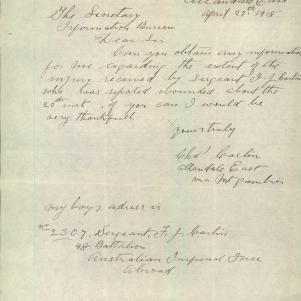 Allandale East
April 27th 1918
The Secretary
Information Bureau
Dear Sir
Can you obtain any information
for me regarding the extent of the
injury received by Sergeant F. J. Carlin
who was reported wounded about the
20th inst. if you can I would be
very thankfull
yours truly
Chas Carlin
Allandale East
via Mt Gambier
my boys adress is
No 2307. Sergeant F. J. Carlin
Battalion
Australian Imperial Force
Abroad